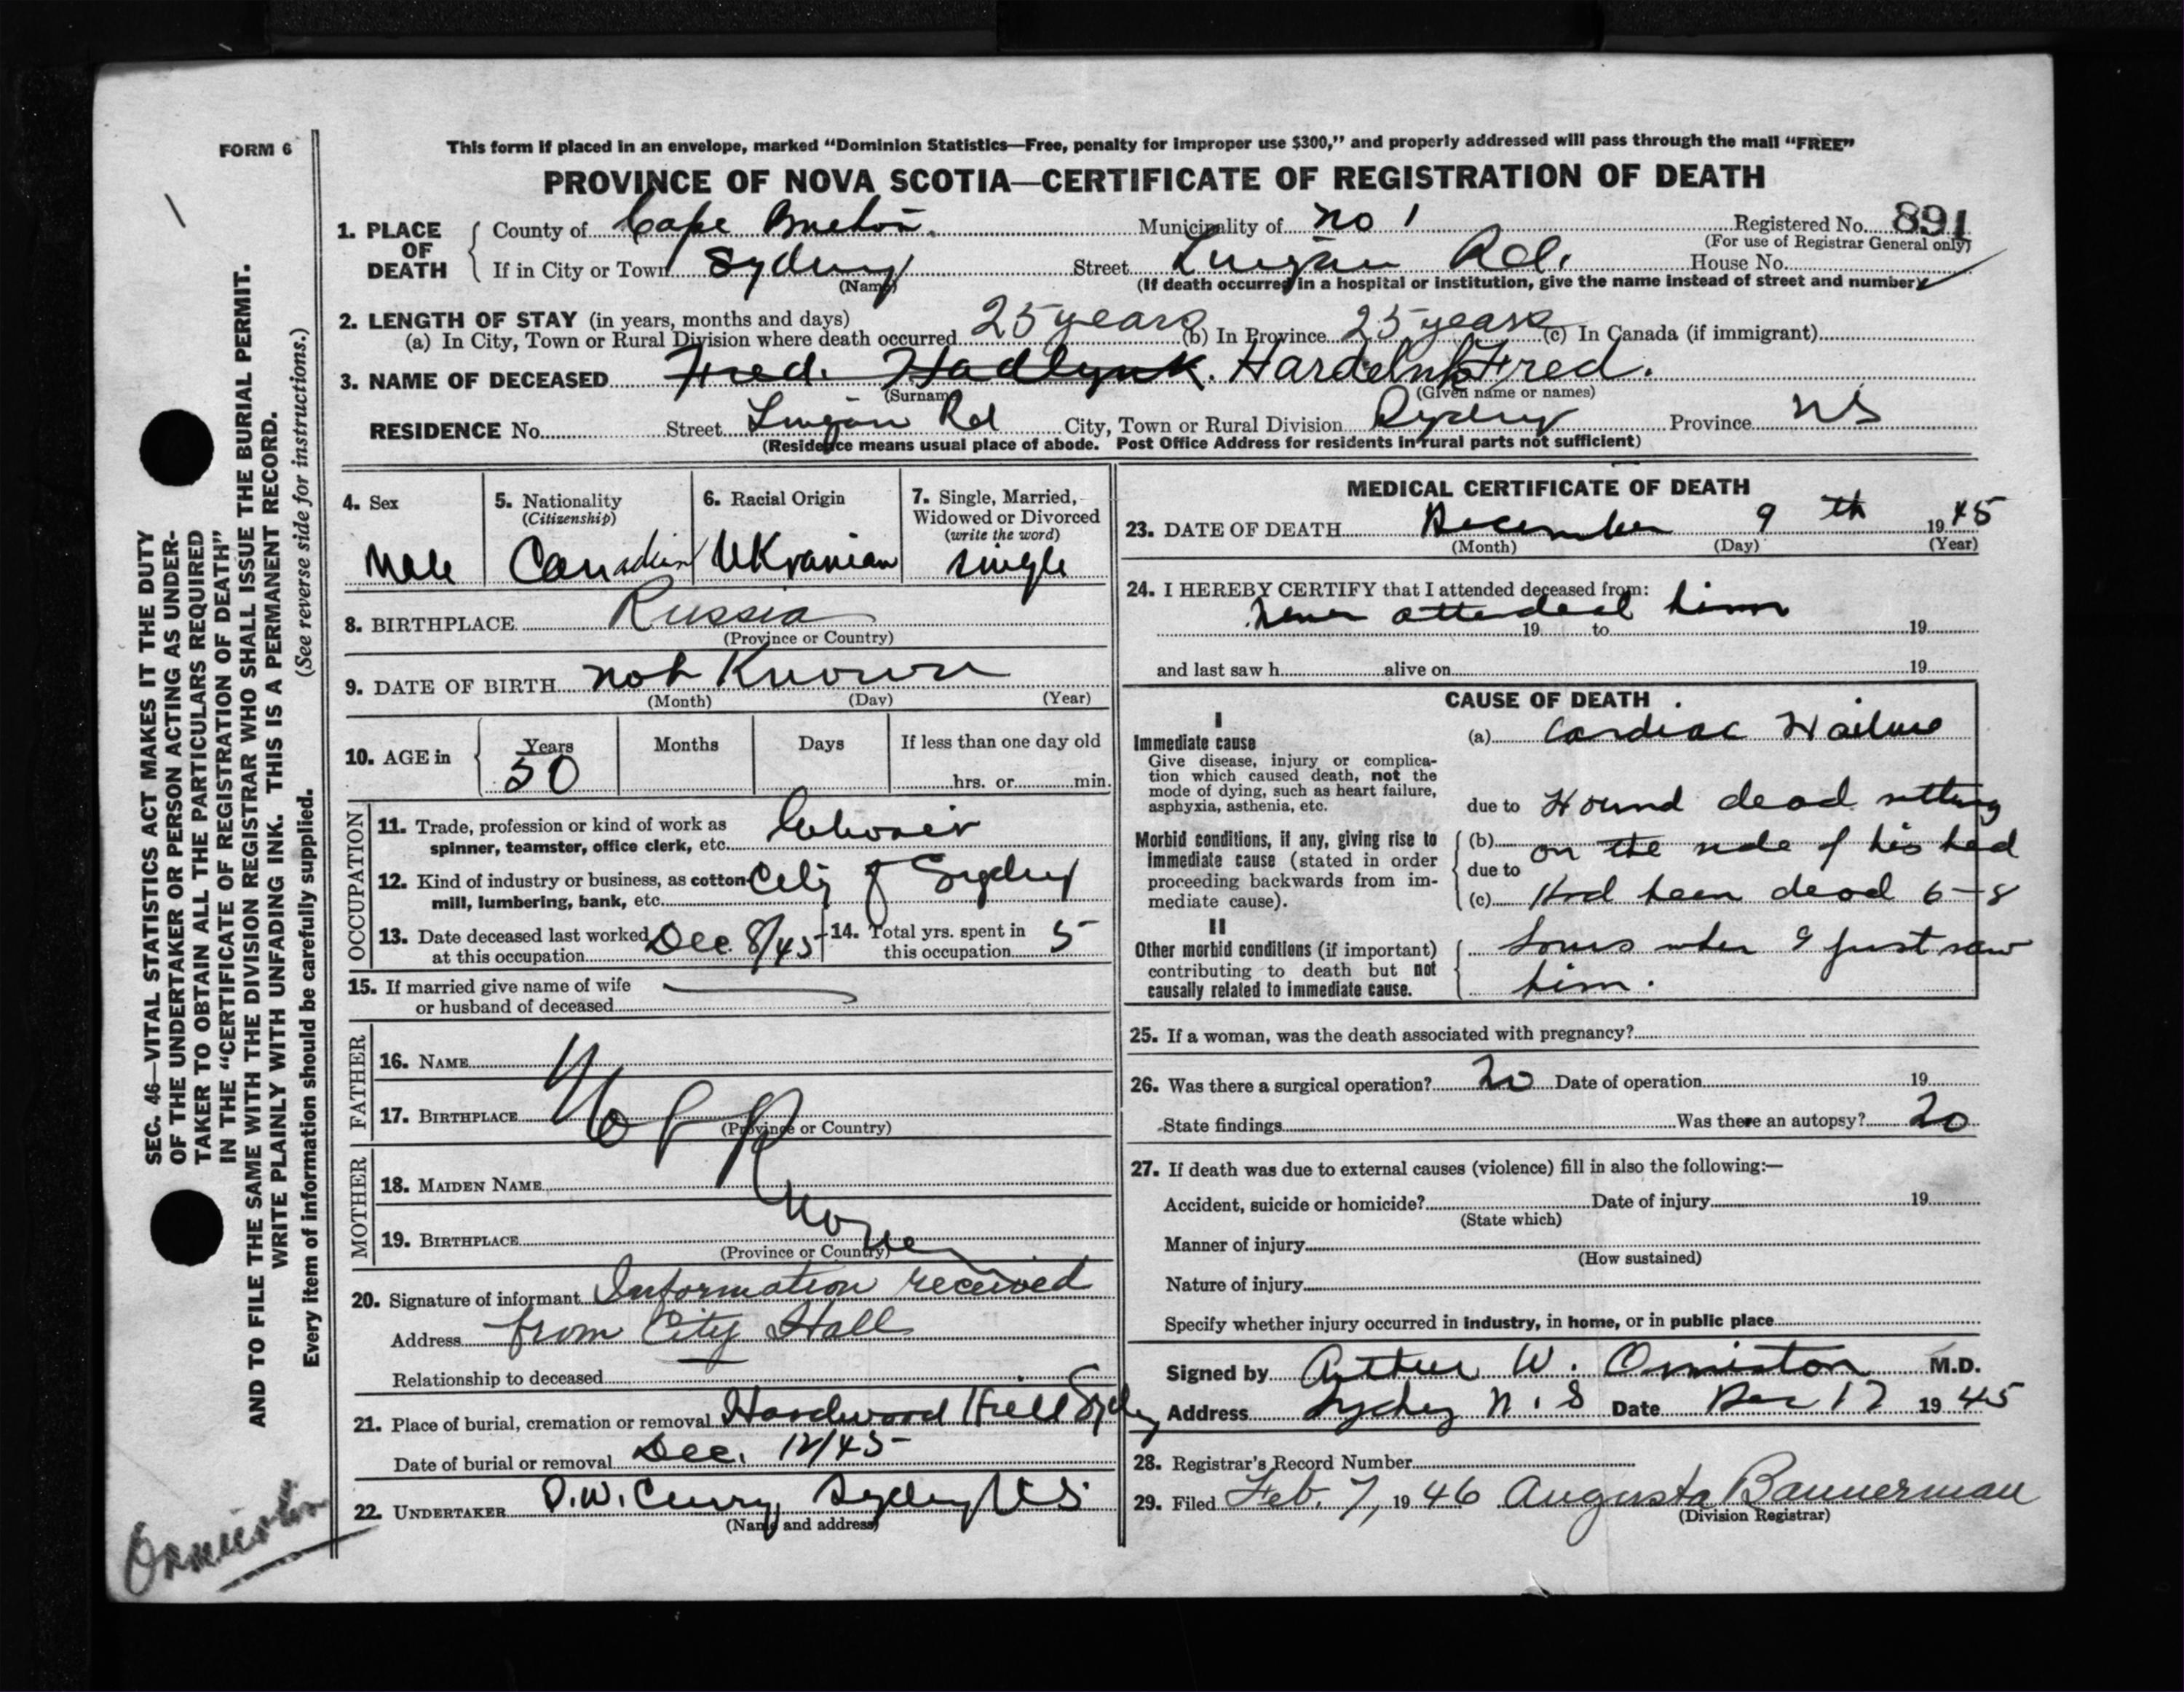 FORM 6
This form if placed in an envelope, marked “Dominion Statistics—Free, penalty for improper use $300,” and properly addressed will pass through the mail “FREE”
PROVINCE OF NOVA SCOTIA—CERTIFICATE OF REGISTRATION OF DEATH
1. PLACE OF DEATH
County of Cape Breton. Municipality of No 1 Registered No. 891
(For use of Registrar General only)
If in City or Town Sydney Street Lingan Rd. House No.
(Name)
(If death occurred in a hospital or institution, give the name instead of street and number)
2. LENGTH OF STAY (in years, months and days)
(a) In City, Town or Rural Division where death occurred 25 years (b) In Province 25 years (c) In Canada (if immigrant)
3. NAME OF DECEASED Fred. Hadlynk. Fred.
(Surname) (Given name or names)
RESIDENCE No. Street Lingan Rd City, Town or Rural Division Sydney Province NS
(Residence means usual place of abode. Post Office Address for residents in rural parts not sufficient)
4. Sex
Male
5. Nationality
(Citizenship)
Canadian
6. Racial Origin
Ukranian
7. Single, Married, Widowed or Divorced
(write the word)
single
8. BIRTHPLACE Russia
(Province or Country)
9. DATE OF BIRTH not Known
(Month) (Day) (Year)
10. AGE in
Years Months Days If less than one day old
50 hrs. or min.
OCCUPATION
11. Trade, profession or kind of work as
spinner, teamster, office clerk, etc.
12. Kind of industry or business, as cotton City of Sydney
mill, lumbering, bank, etc.
13. Date deceased last worked Dec 8/45 14. Total yrs. spent in 5
at this occupation this occupation
15. If married give name of wife
or husband of deceased
FATHER
16. NAME
17. BIRTHPLACE Not
(Province or Country)
MOTHER
18. MAIDEN NAME
19. BIRTHPLACE Known
(Province or Country)
20. Signature of informant Information received
Address from City Hall
Relationship to deceased
21. Place of burial, cremation or removal Hardwood Hill Sydney
Date of burial or removal Dec. 12/45
22. UNDERTAKER D.W. Curry, Sydney N.S.
(Name and address)
MEDICAL CERTIFICATE OF DEATH
23. DATE OF DEATH December 9 th 1945
(Month) (Day) (Year)
24. I HEREBY CERTIFY that I attended deceased from:
never attended him
19 to 19
and last saw h alive on 19
CAUSE OF DEATH
I
Immediate cause (a) Cardiac Failure
Give disease, injury or complica-
tion which caused death, not the
mode of dying, such as heart failure,
asphyxia, asthenia, etc.
due to Found dead sitting
Morbid conditions, if any, giving rise to
immediate cause (stated in order
proceeding backwards from im-
mediate cause).
(b) on the side of his bed
due to
(c) Had been dead 6-8
II
Other morbid conditions (if important)
contributing to death but not
causally related to immediate cause.
hours when I first saw
him.
25. If a woman, was the death associated with pregnancy?
26. Was there a surgical operation? No Date of operation 19
State findings Was there an autopsy? No
27. If death was due to external causes (violence) fill in also the following:—
Accident, suicide or homicide? Date of injury 19
(State which)
Manner of injury
(How sustained)
Nature of injury
Specify whether injury occurred in industry, in home, or in public place
Signed by Arthur W. Ormiston M.D.
Address Sydney N.S Date Dec 17 1945
28. Registrar's Record Number
29. Filed Feb. 7, 1946 Augusta Bannerman
(Division Registrar)
SEC. 46—VITAL STATISTICS ACT MAKES IT THE DUTY
OF THE UNDERTAKER OR PERSON ACTING AS UNDER-
TAKER TO OBTAIN ALL THE PARTICULARS REQUIRED
IN THE “CERTIFICATE OF REGISTRATION OF DEATH”
AND TO FILE THE SAME WITH THE DIVISION REGISTRAR WHO SHALL ISSUE THE BURIAL PERMIT.
WRITE PLAINLY WITH UNFADING INK. THIS IS A PERMANENT RECORD.
(See reverse side for instructions.)
Every item of information should be carefully supplied.
Ormiston